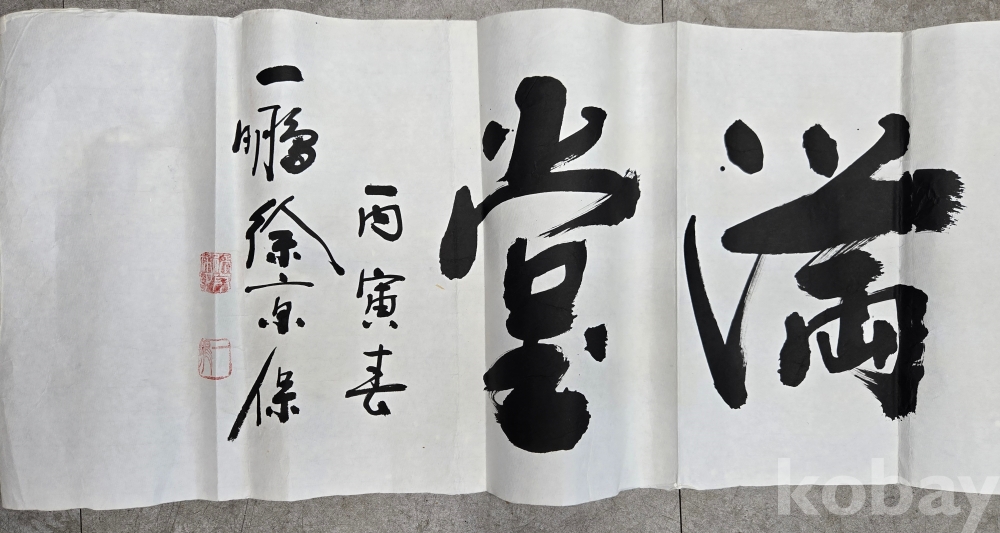 滿
堂
丙寅春
一鵬徐京保
kobay